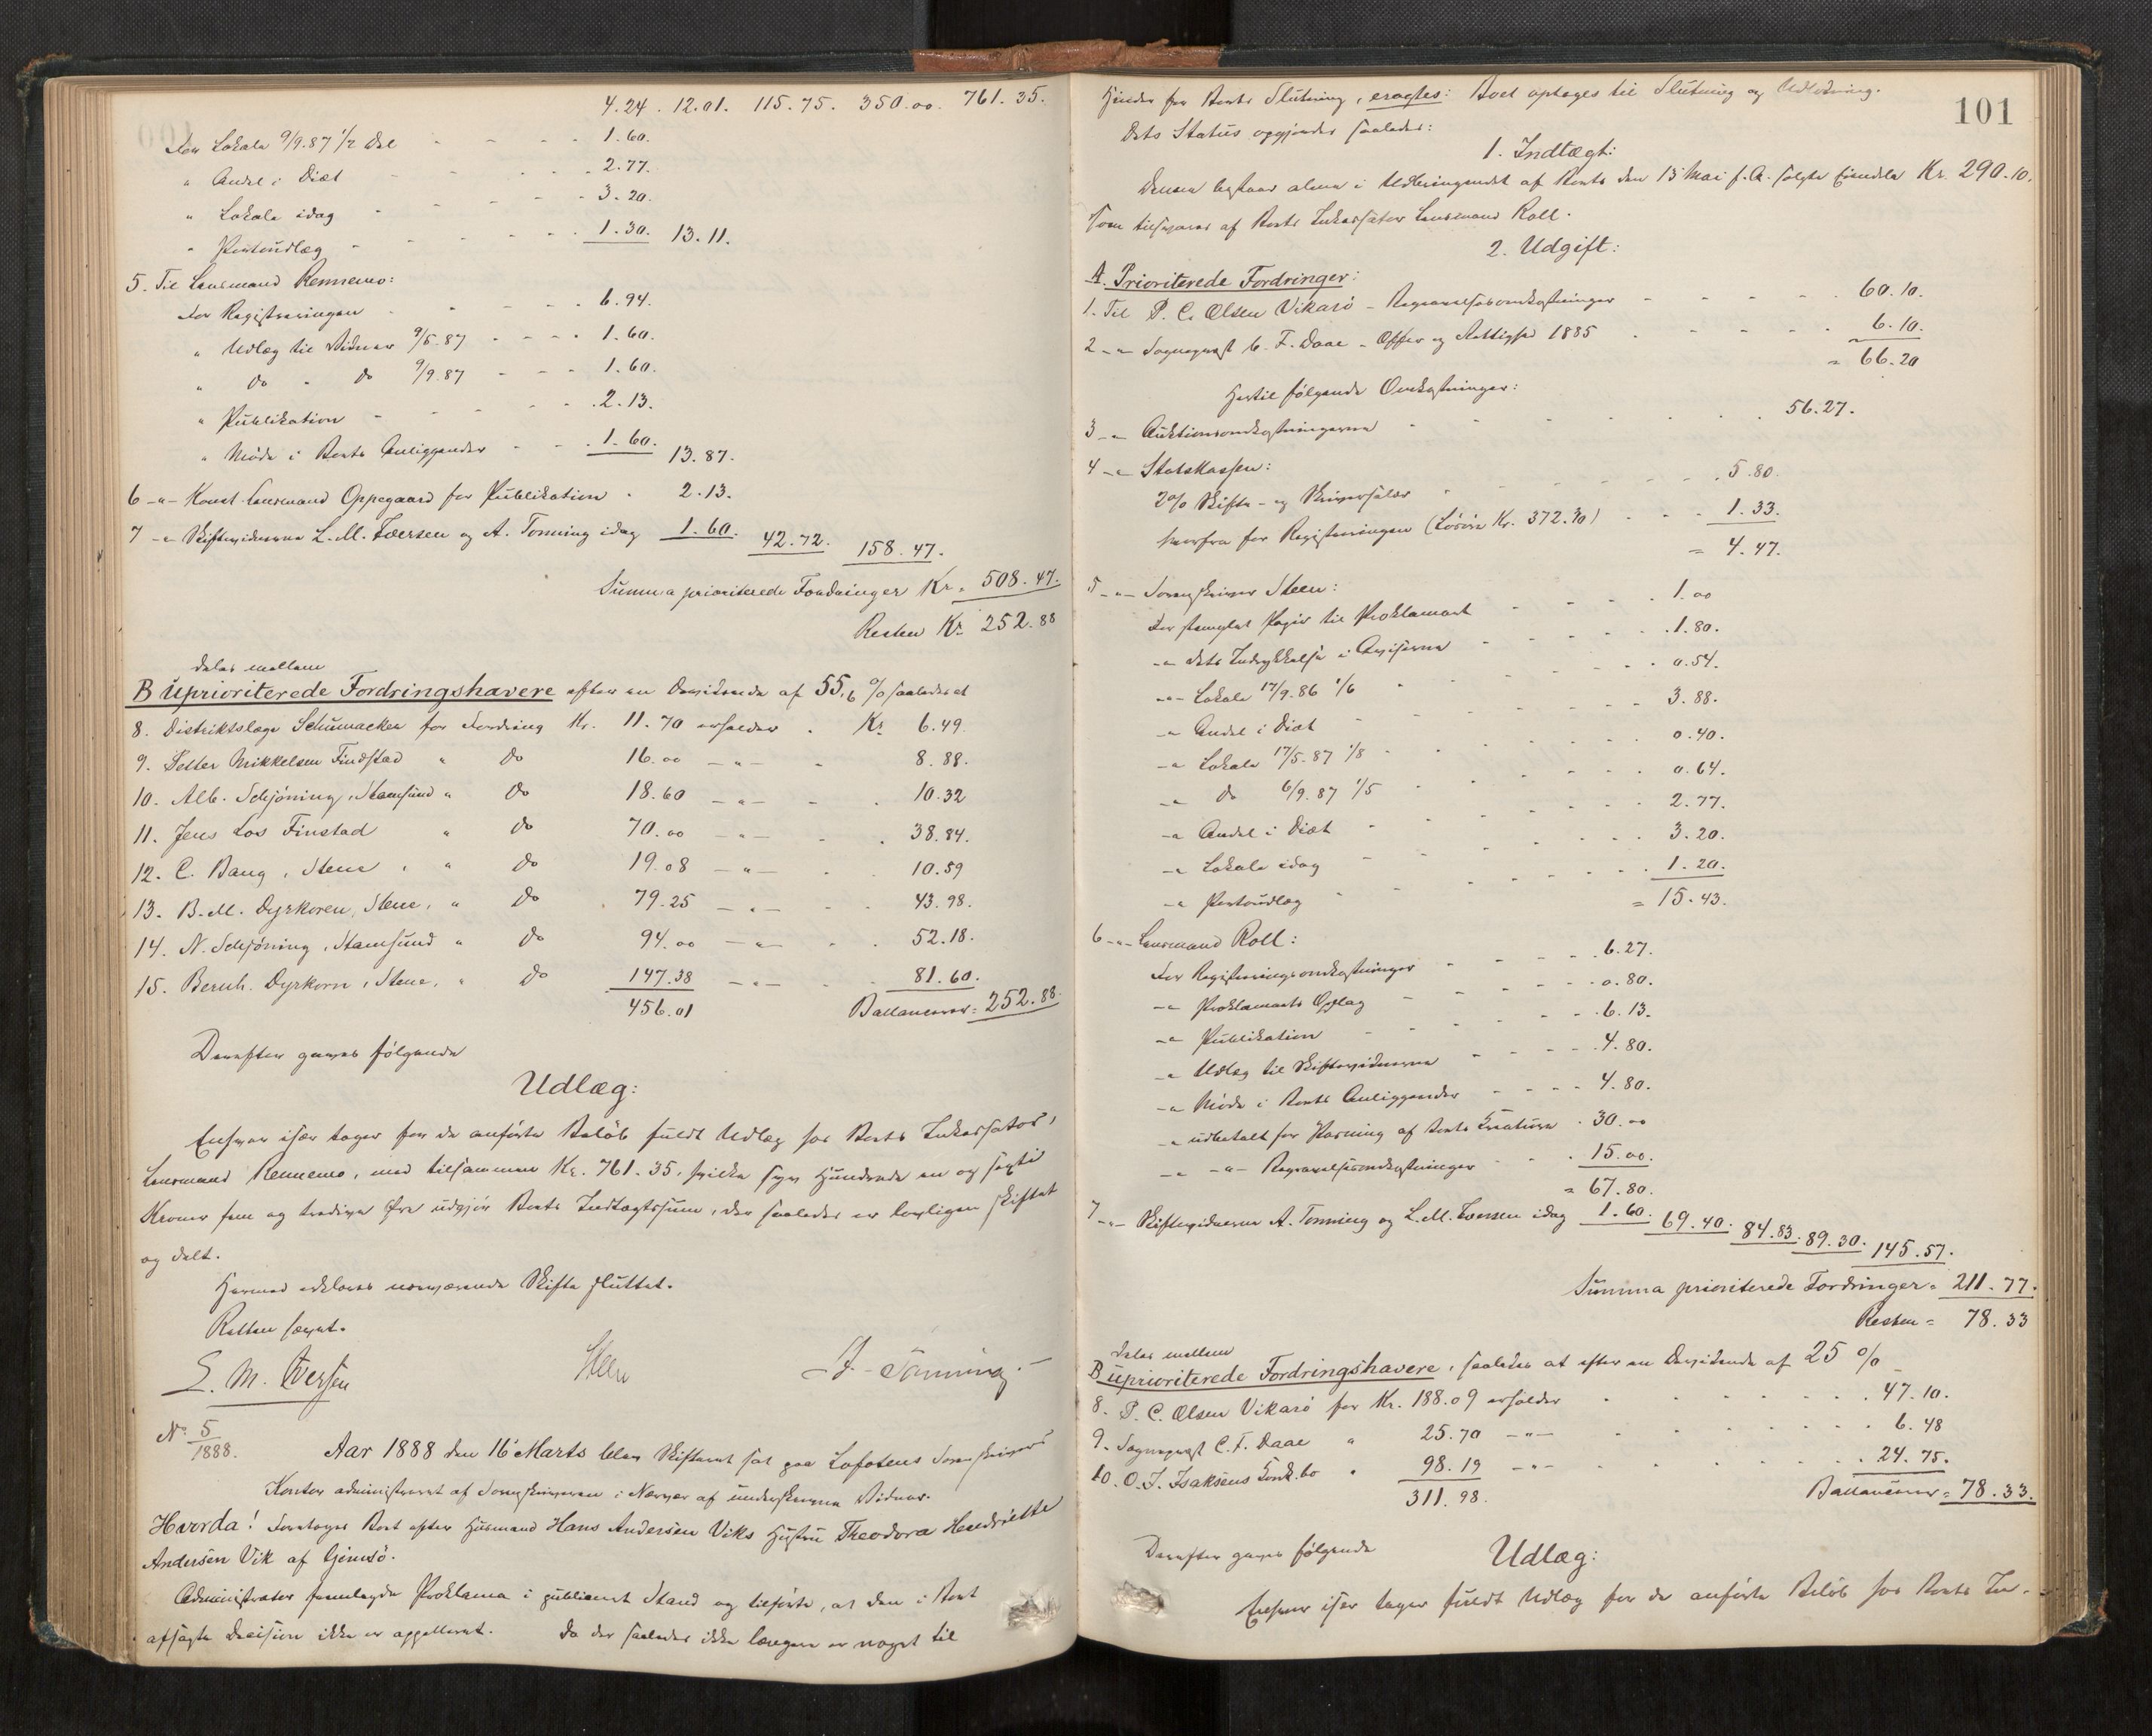 4.24. 12.01. 115.75. 350.00. 761.35.
For Lokale 9/9.87 1/2 Del - - - 1.60.
" Andel i Diæt - - - 2.77.
" Lokale idag - - - 3.20.
" Portoudlæg - - - 1.30. 13.11.
5. Til Lensmand Rennemo:
For Registreringen - - - 6.94.
" Udlæg til Vidner 9/5.87 - - - 1.60.
" do - do 9/9.87 - - - 1.60.
" Publikation - - - 2.13.
" Møde i Boets Anliggender - - 1.60. 13.87.
6 -"- Konst. Lensmand Oppegaard for Publikation . 2.13.
7 -"- Skiftevidnerne L. M. Iversen og A. Tonning idag 1.60. 42.72. 158.47.
Summa prioriterede Fordringer Kr. 508.47.
Resten Kr. 252.88
deles mellem
B Uprioriterede Fordringshavere efter en Dividende af 55,6 % saaledes at
8. Distriktslæge Schumacker for Fordring Kr. 11.70 erholder . Kr. 6.49.
9. Petter Mikkelsen Findstad " do 16.00 -"- - 8.88.
10. Alb. Schjöning, Stamsund " do 18.60 -"- - 10.32
11. Jens Los Finstad " do 70.00 -"- - 38.84.
12. C. Bang, Stene, " do 19.08 -"- - 10.59
13. B. M. Dyrkoren, Stene, " do 79.25 -"- - 43.98.
14. N. Schjöning, Stamsund " do 94.00 -"- - 52.18.
15. Bernh. Dyrkorn, Stene, " do 147.38 -"- - 81.60.
456.01 Ballancerer = 252.88.
Derefter gaves følgende
Udlæg:
Enhver især tager for de anførte Beløb fuldt Udlæg hos Boets Inkassator,
Lensmand Rennemo, med tilsammen Kr. 761.35, hvilke syv Hundrede en og sexti
Kroner fem og tredive Øre udgjør Boets Indtægtssum, der saaledes er lovligen skiftet
og delt.
Hermed erklæres nærværende Skifte sluttet.
Retten hævet.
L. M. Iversen Steen A. Tonning.
No 5/1888.
Aar 1888 den 16 Marts blev Skifteret sat paa Lofotens Sorenskriver
Kontor administreret af Sorenskriveren i Nærvær af underskrevne Vidner.
Hvorda! Foretoges Boet efter Husmand Hans Andersen Viks Hustru Theodora Hendriette
Andersen Vik af Gimsö.
Administrator fremlagde Proklama i publiceret Stand og tilførte, at den i Boet
afsagte Decision ikke er appelleret. Da der saaledes ikke længere er noget til
101
Hinder for Boets Slutning, eragtes: Boet optages til Slutning og Udlodning.
Dets Status opgjøres saaledes:
1. Indtægt:
Denne bestaar alene i Udbringendet af Boets den 13 Mai f. A. solgte Eiendele Kr. 290.10.
som tilsvares af Boets Inkassator Lensmand Roll.
2. Udgift:
A. Prioriterede Fordringer:
1. Til P. C. Olsen Vikarö - Begravelsesomkostninger - - - 60.10.
2 -"- Sogneprest C. F. Daae - Offer og Rettighed 1885 - - - 6.10.
= 66.20
Hertil følgende Omkostninger:
3 -"- Auktionsomkostningerne - - - 56.27.
4 -"- Statskassen:
2% Skifte- og Skriversalær - - - 5.80.
herfra for Registreringen (Løsøre Kr. 372.30) - - - 1.33.
= 4.47.
5 -"- Sorenskriver Steen:
For stemplet Papir til Proklamaet - - - 1.00
-"- dets Indrykkelse i Aviserne - - - 1.80.
-"- Lokale 17/9.86 1/6 - - - 0.54.
-"- Andel i Diæt - - - 3.88.
-"- Lokale 17/5.87 1/8 - - - 0.40.
-"- do 6/9.87 1/5 - - - 0.64.
-"- Andel i Diæt - - - 2.77.
-"- Lokale idag - - - 3.20.
-"- Portoudlæg - - - 1.20.
= 15.43.
6 -"- Lensmand Roll:
For Registreringsomkostninger - - - 6.27.
-"- Proklamaets Opslag - - - 0.80.
-"- Publikation - - - 6.13.
-"- Udlæg til Skiftevidnerne - - - 4.80.
-"- Møde i Boets Anliggender - - - 4.80.
-"- udbetalt for Pasning af Boets Kreaturer . 30.00
-"- -"- Begravelsesomkostninger - - 15.00.
= 67.80.
7 -"- Skiftevidnerne A. Tonning og L. M. Iversen idag 1.60. 69.40. 84.83. 89.30. 145.57.
Summa prioriterede Fordringer = 211.77.
Resten = 78.33
deles mellem
B uprioriterede Fordringshavere, saaledes at efter en Dividende af 25 %
8. P. C. Olsen Vikarö for Kr. 188.09 erholder - - - 47.10.
9. Sogneprest C. F. Daae " 25.70 -"- - - - 6.48
10. O. J. Isaksens Konk.bo " 98.19 -"- - - - 24.75.
311.98. Ballancerer = 78.33.
Derefter gaves følgende Udlæg:
Enhver især tager fuldt Udlæg for de anførte Beløb hos Boets In-